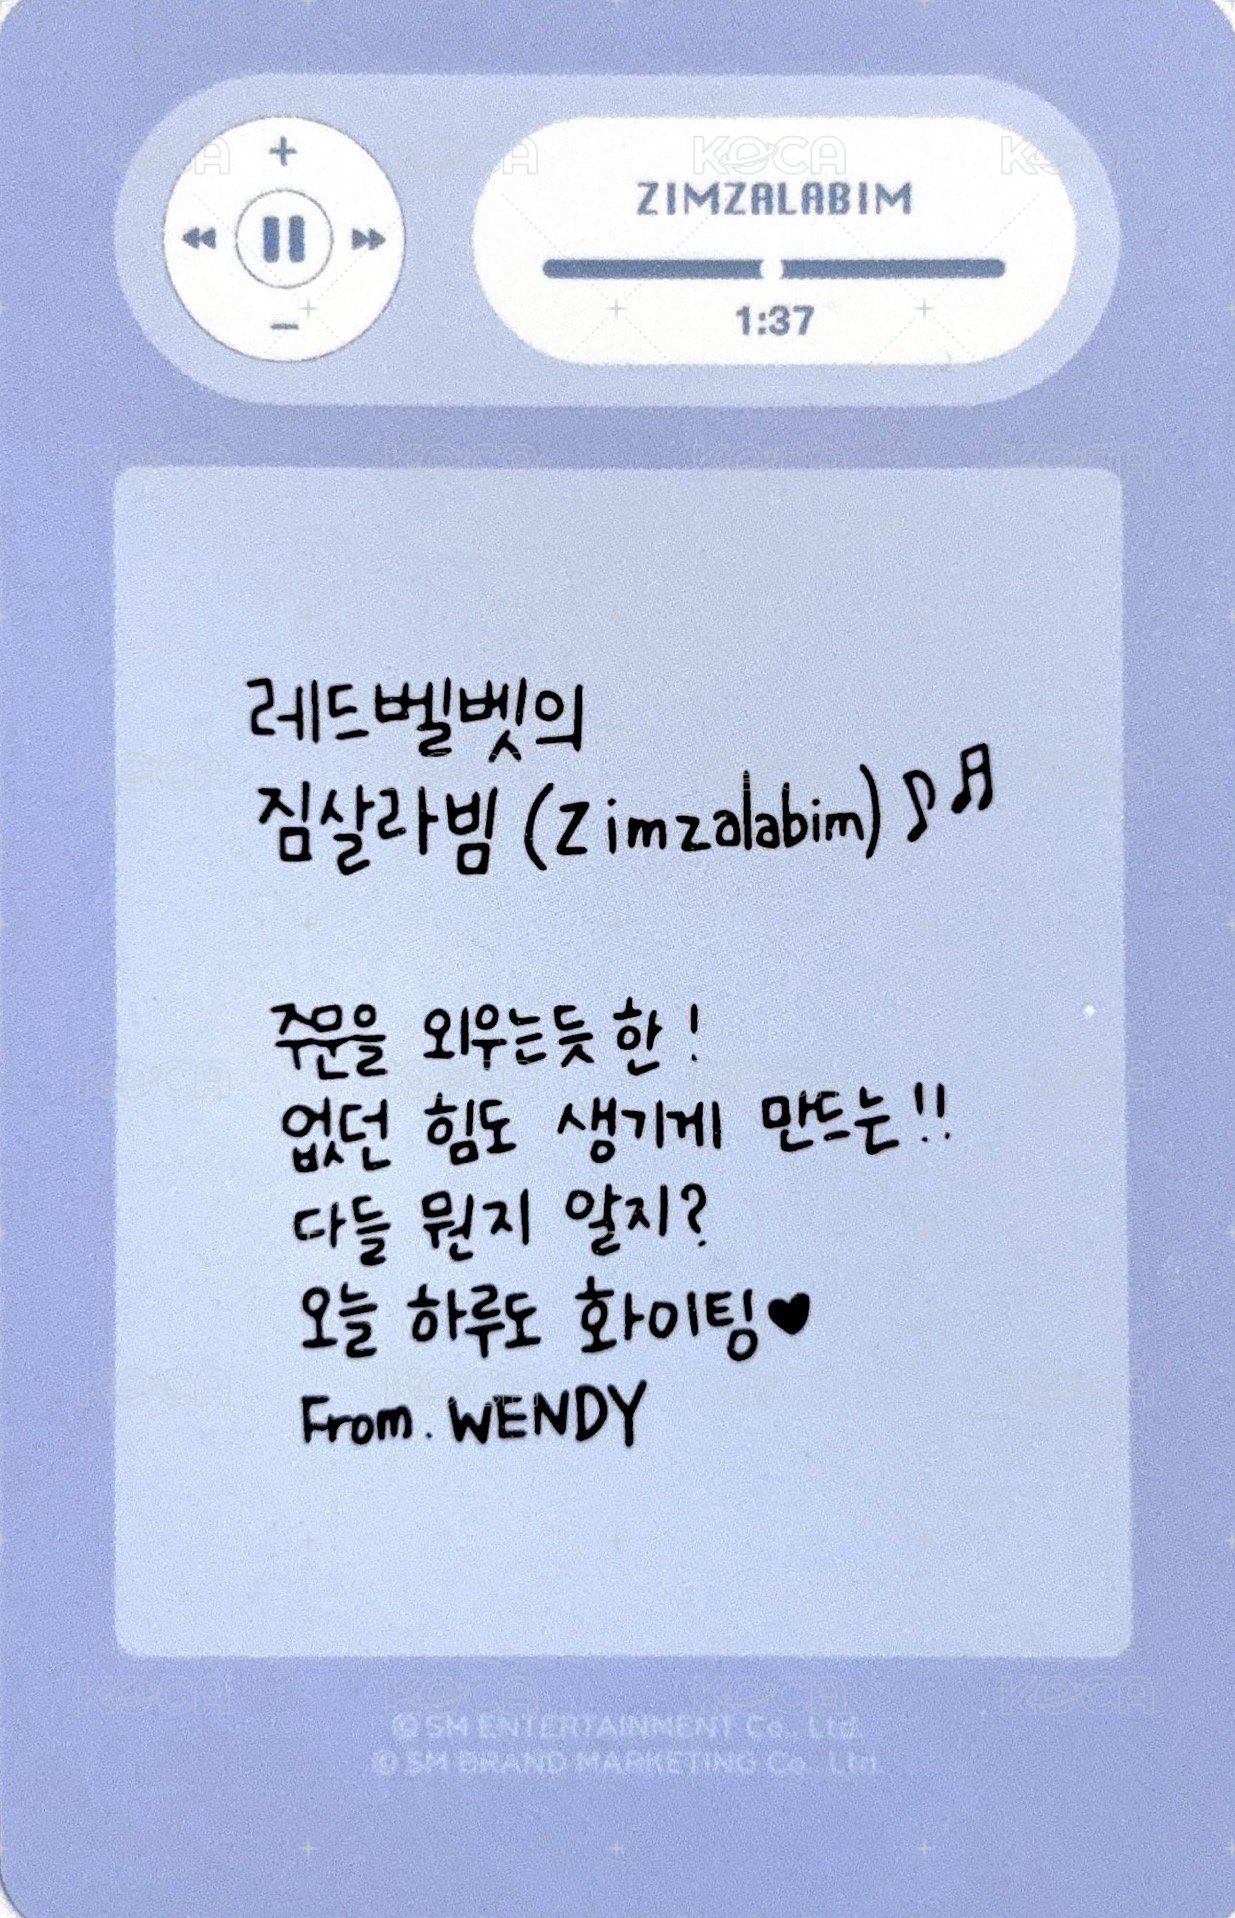 ZIMZALABIM
1:37
레드벨벳의
짐살라빔 (Zimzalabim)
주문을 외우는듯 한!
없던 힘도 생기게 만드는!!
다들 뭔지 알지?
오늘 하루도 화이팅♥
From. WENDY
© SM ENTERTAINMENT Co., Ltd.
© SM BRAND MARKETING Co., Ltd.
KOCA